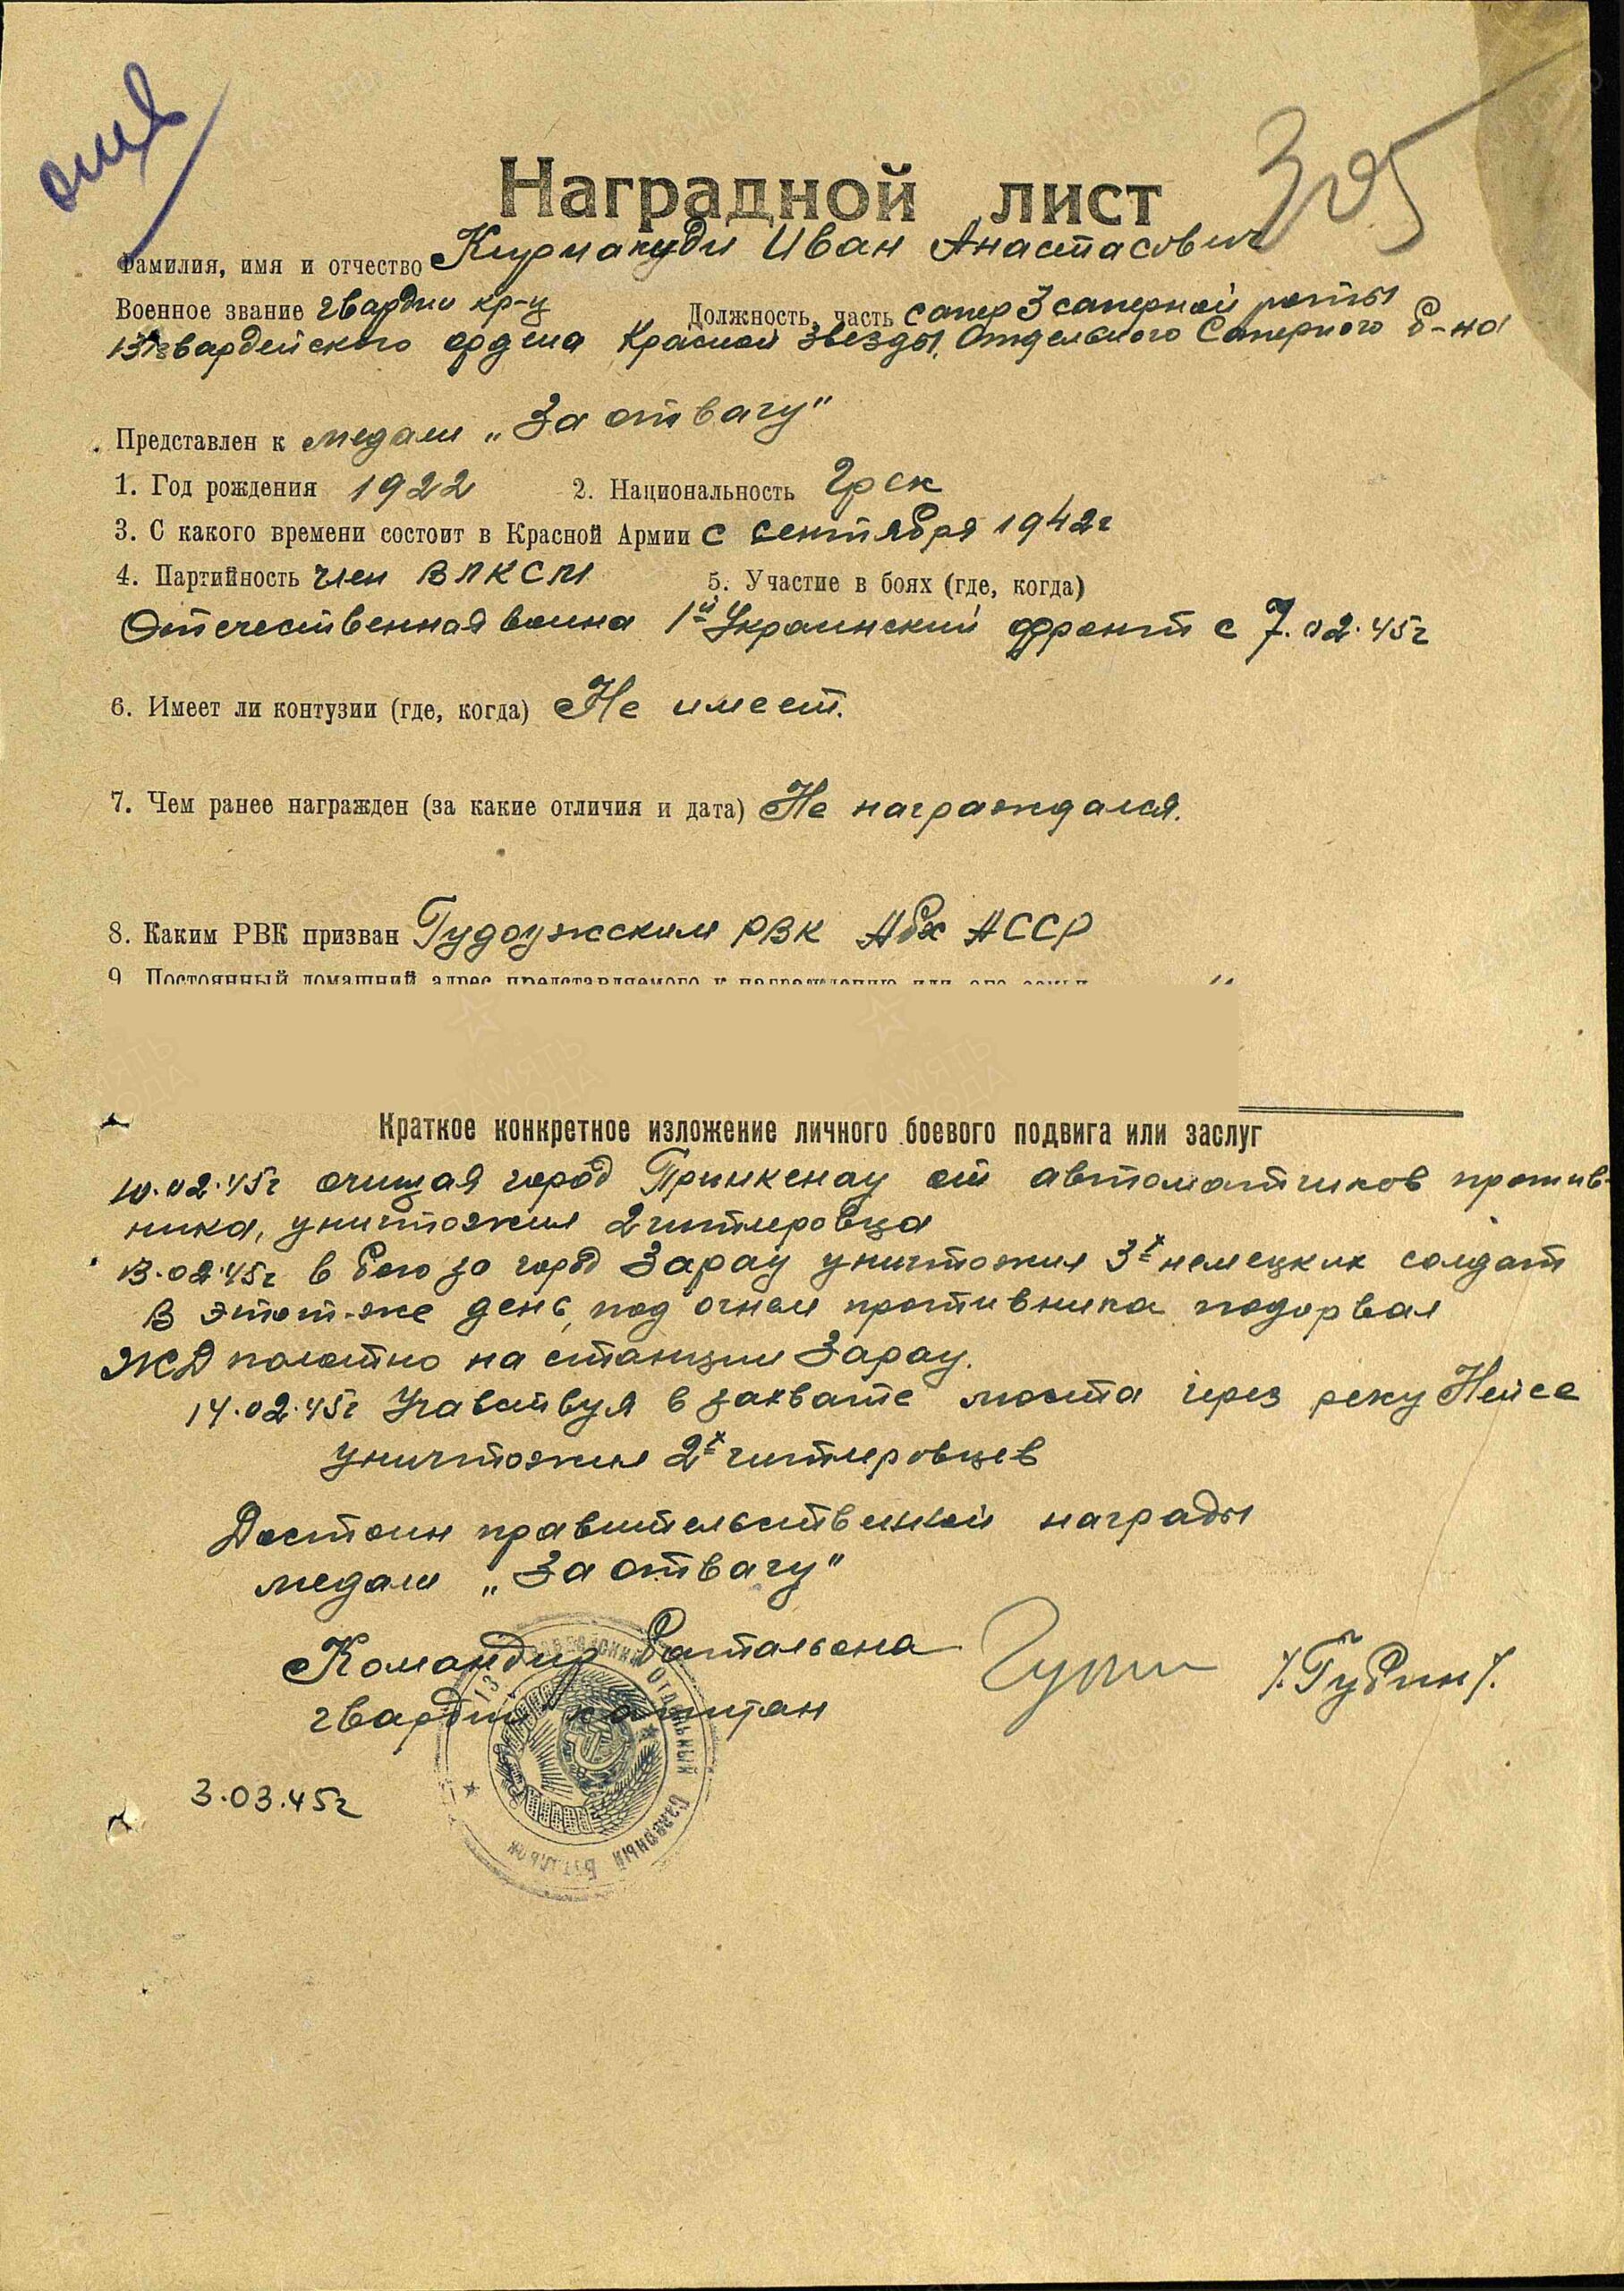 Наградной лист
305
Фамилия, имя и отчество Кириакиди Иван Анастасович
Военное звание гвардии кр-ц Должность, часть сапер 3 саперной роты
13 гвардейского ордена Красной Звезды, Отдельного Саперного б-на
Представлен к медали „За отвагу"
1. Год рождения 1922 2. Национальность Грек
3. С какого времени состоит в Красной Армии с сентября 1942г
4. Партийность член ВЛКСМ 5. Участие в боях (где, когда)
Отечественная воина 1й Украинский фронт с 7.02.45г
6. Имеет ли контузии (где, когда) Не имеет.
7. Чем ранее награжден (за какие отличия и дата) Не награждался.
8. Каким РВК призван Гудоужским РВК Абх АССР
9. Постоянный домашний адрес представляемого к награждению или его семьи
Краткое конкретное изложение личного боевого подвига или заслуг
10.02.45г очищая город Принкенау от автоматчиков против-
ника, уничтожил 2 гитлеровца
13.02.45г в бою за город Зарау уничтожил 3х немецких солдат
В этот-же день, под огнем противника подорвал
ЖД полотно на станции Зарау.
14.02.45г Учавствуя в захвате моста через реку Нейсе
уничтожил 2х гитлеровцев
Достоин правительственной награды
медали „За отвагу"
Командир батальона
гвардии капитан /.Губин/.
3.03.45г